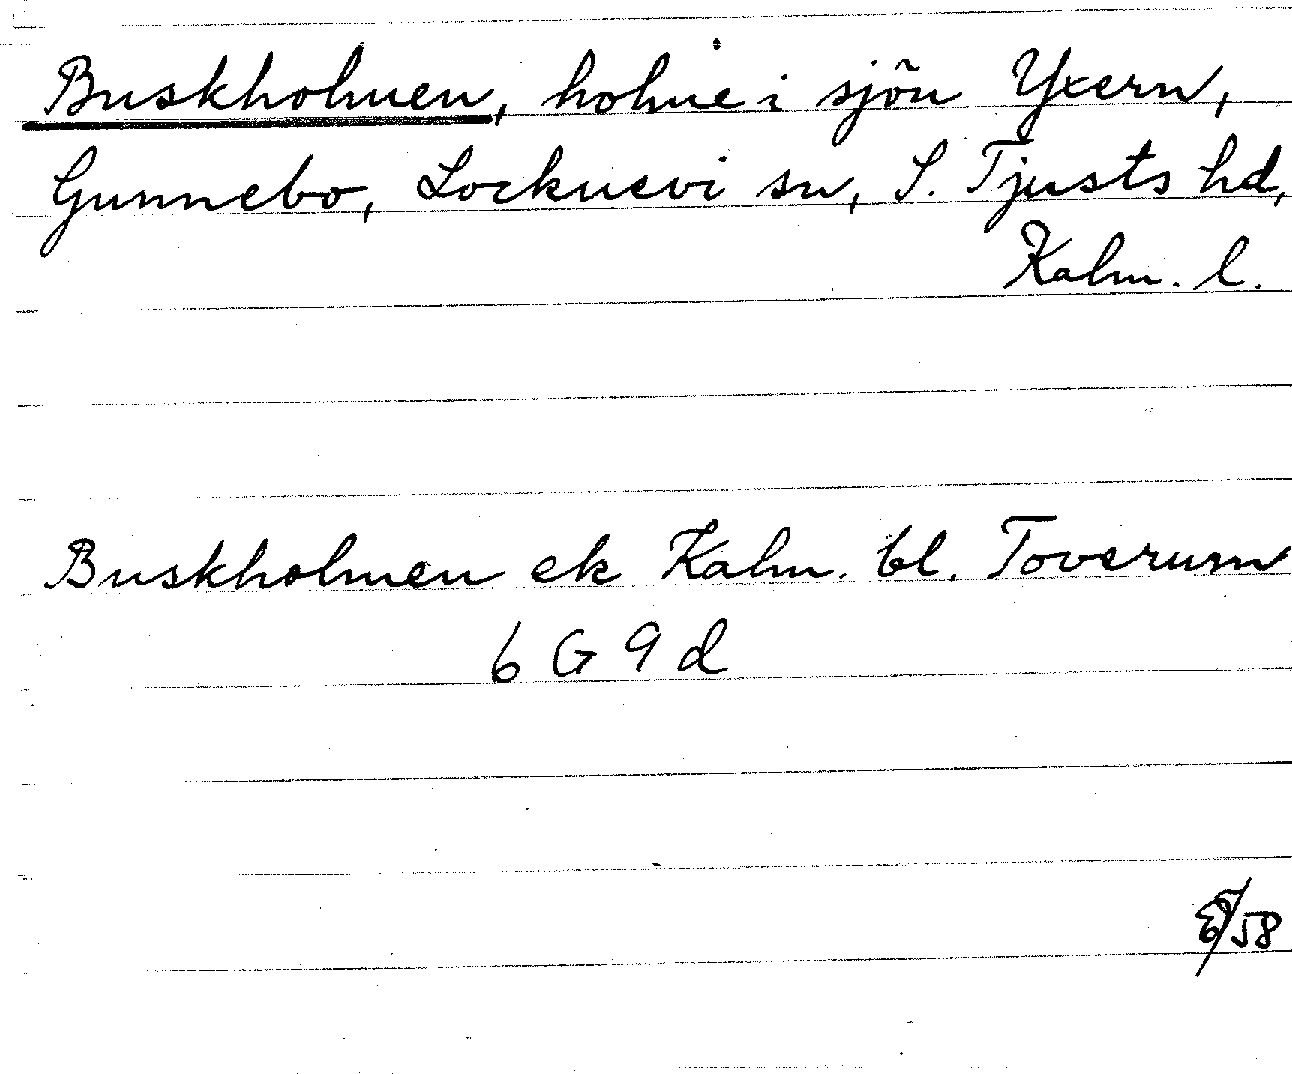 Buskholmen, holme i sjön Yxern,
Gunnebo, Locknevi sn, S. Tjusts hd,
Kalm. l.
Buskholmen ek Kalm. bl. Toverum
6 G 9 d
/58